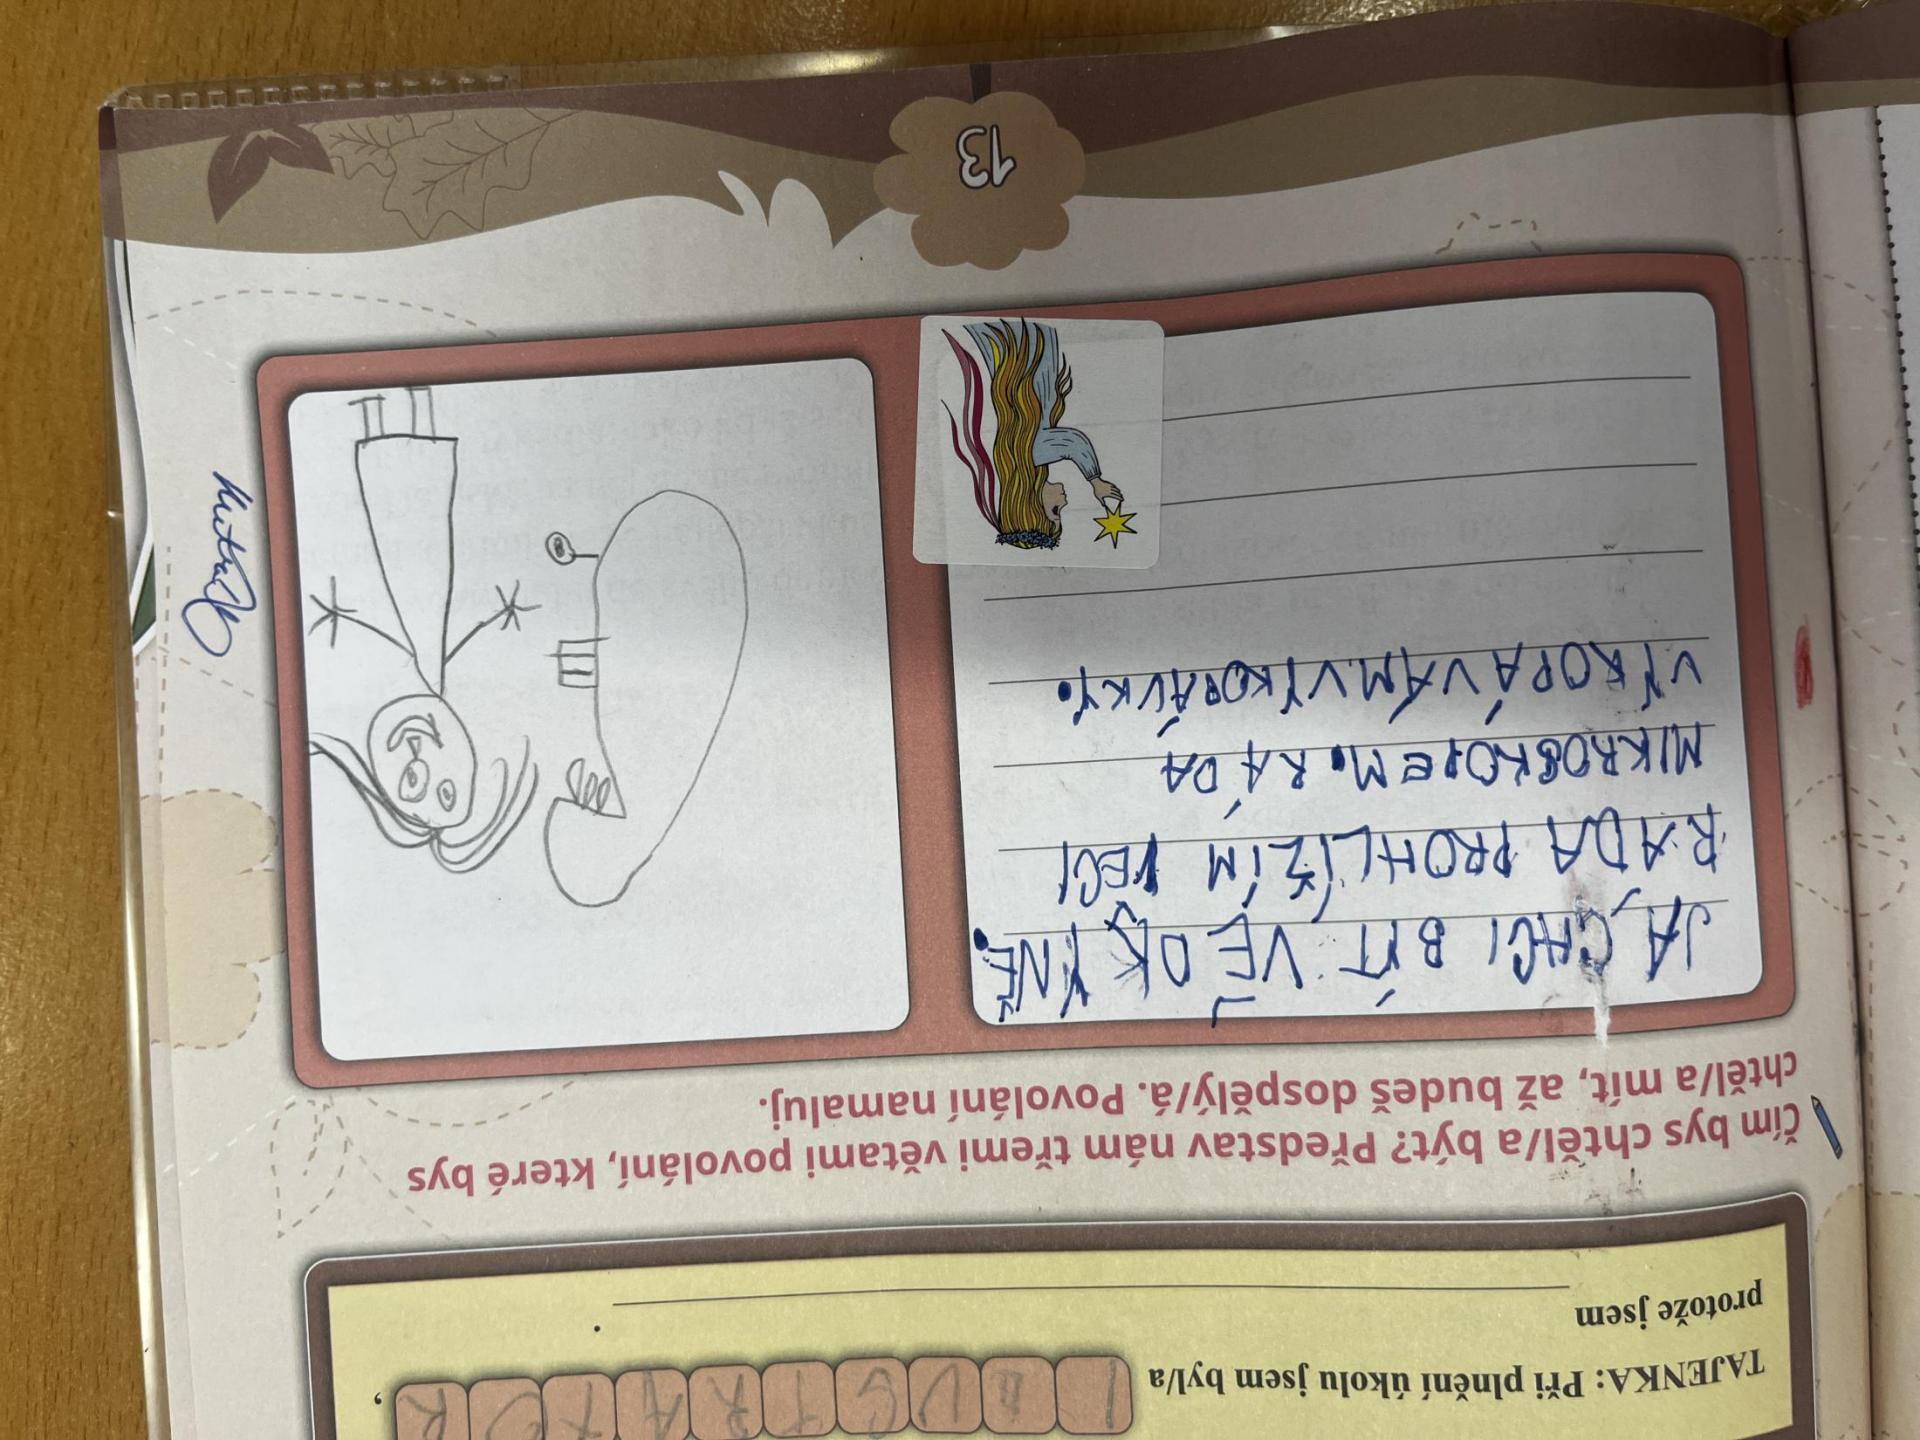 TAJENKA: Při plnění úkolu jsem byl/a ILUSTRÁTOR,
protože jsem .
Čím bys chtěl/a být? Představ nám třemi větami povolání, které bys
chtěl/a mít, až budeš dospělý/á. Povolání namaluj.
JÁ CHCI BÝT VĚDKYNĚ.
RADA PROHLÍŽÍM VĚCI
MIKROSKOPEM. RÁDA
VYKOPÁVÁM VYKOPÁVKY.
13